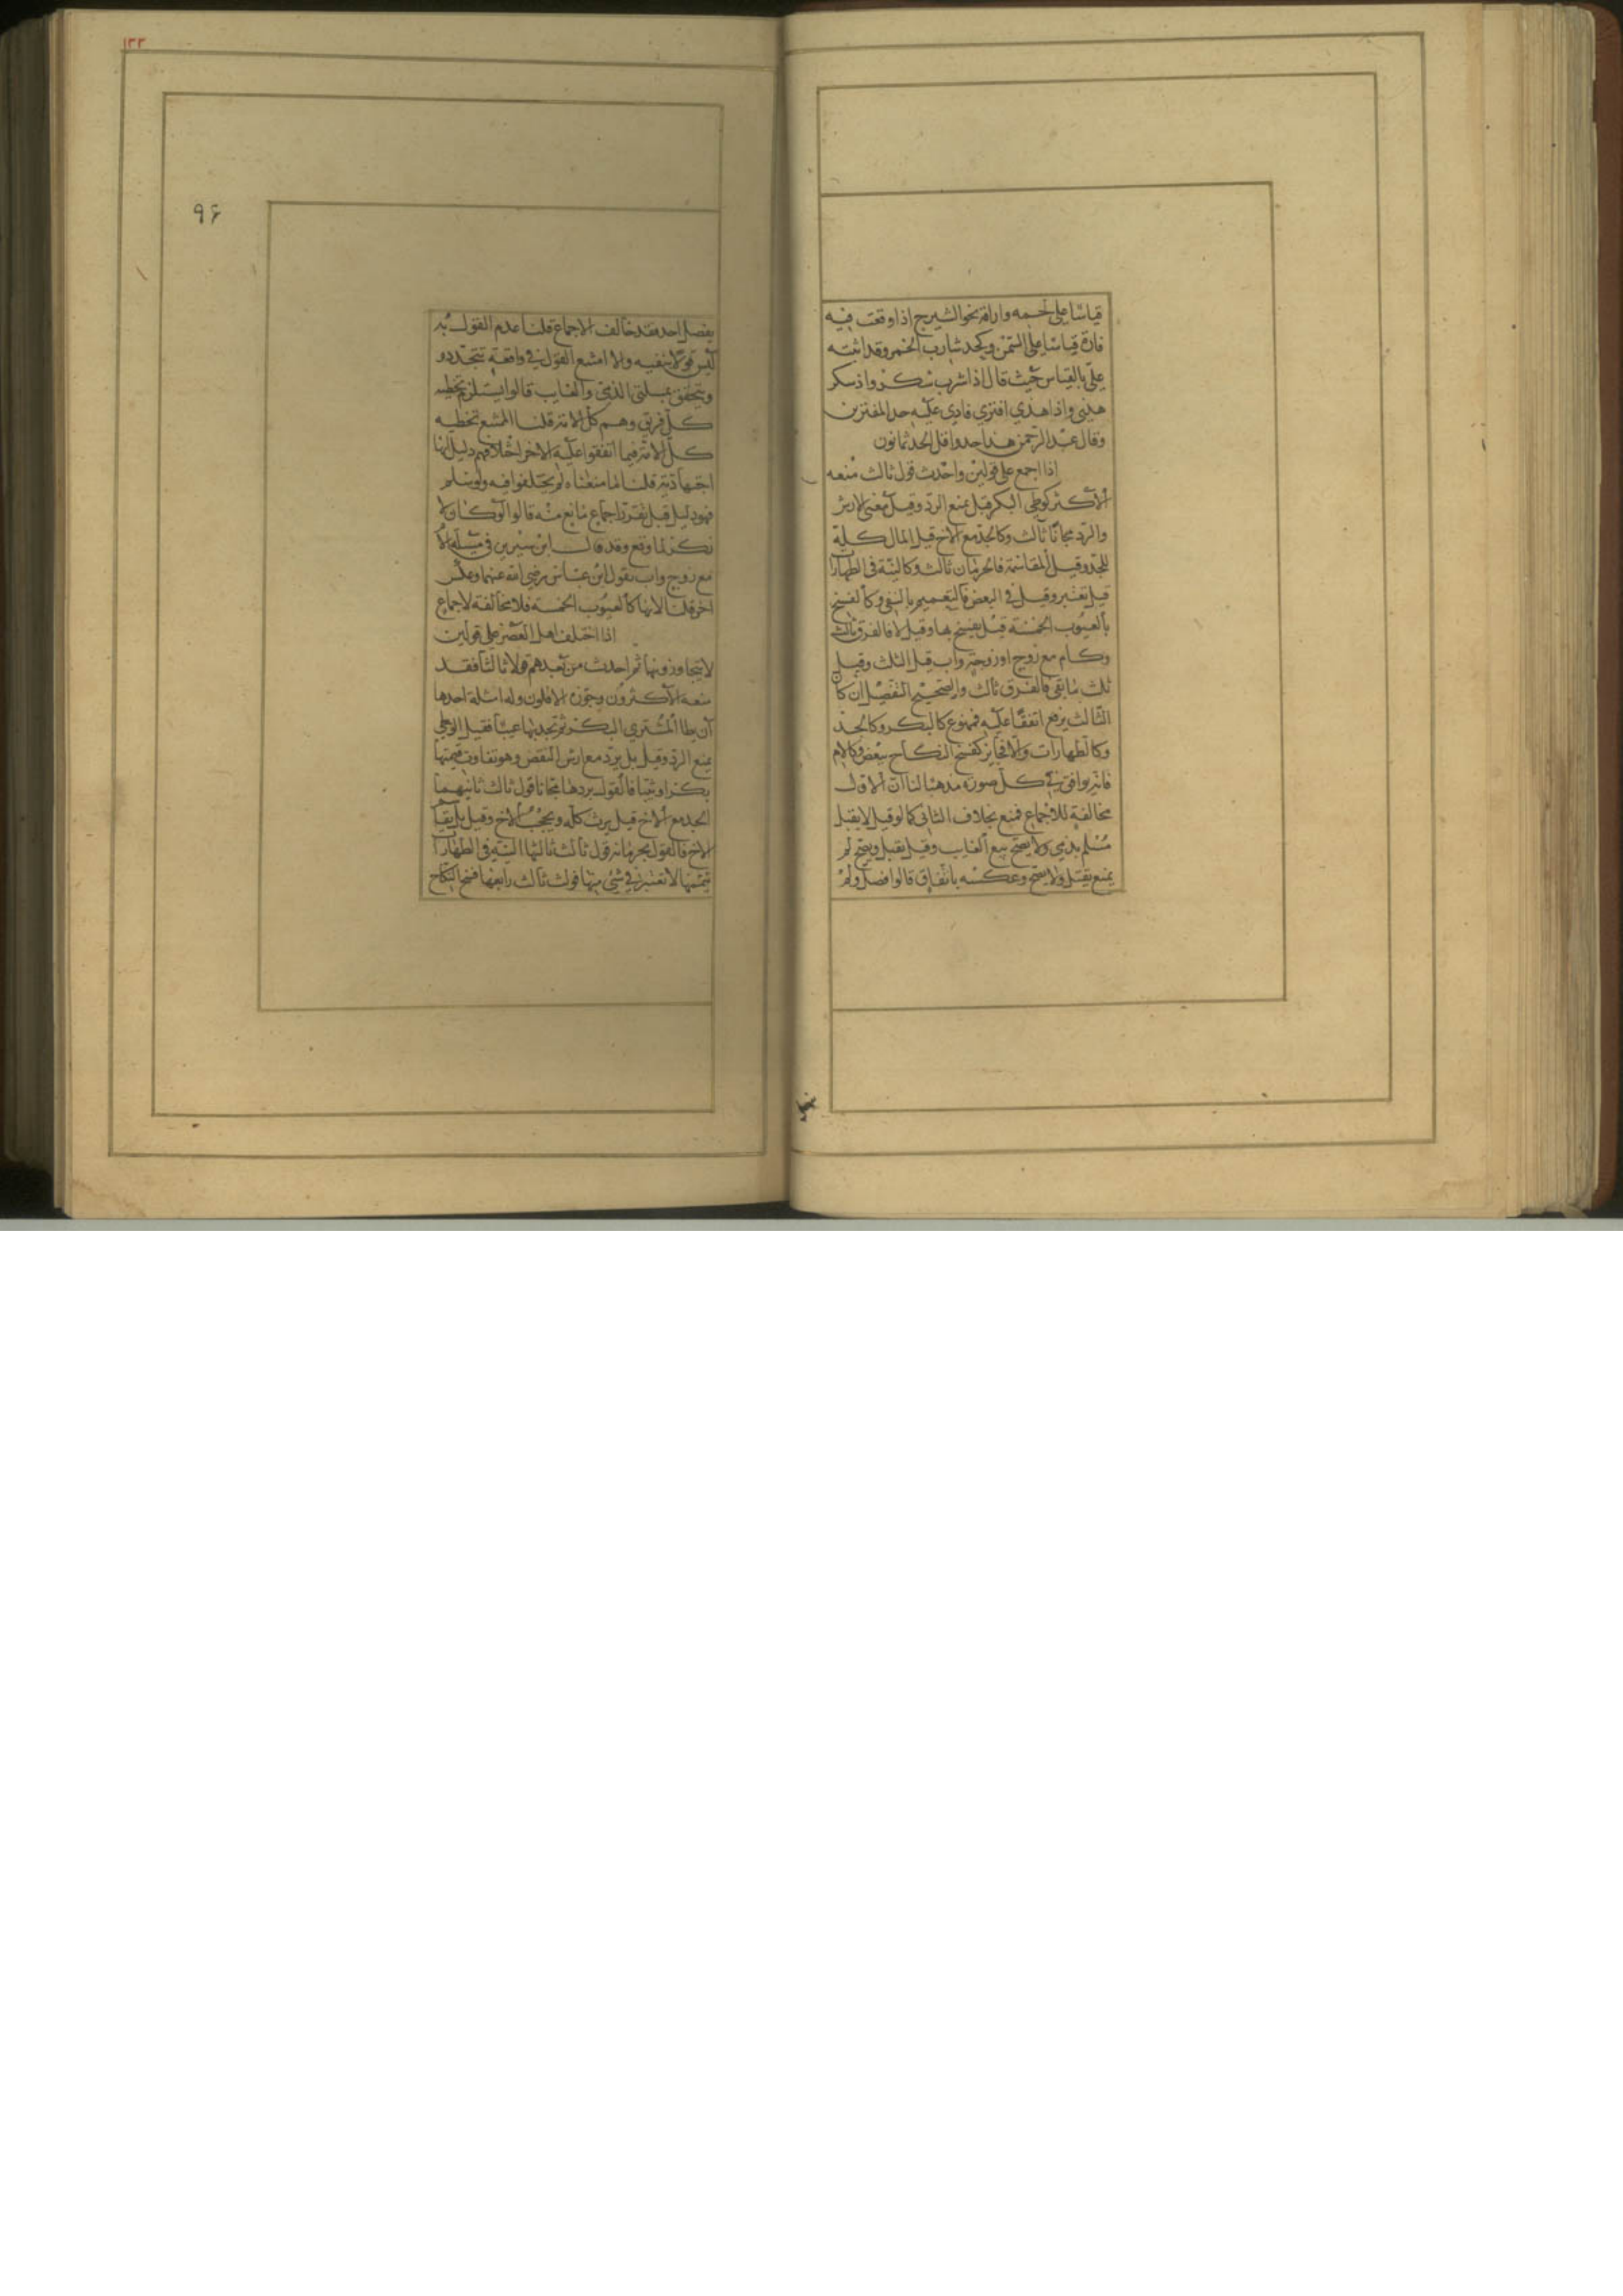 قياسا على لحمه واراقة نحو الشيرج اذا وقعت فيه
فارة قياسا على السمن وكحد شارب الخمر وقد اثبته
علي بالقياس حيث قال اذا شرب سكر واذا سكر
هذى واذا هذي افتري فاري عليه حد المفترين
وقال عبد الرحمن هذا حد واقل الحد ثمانون
اذا اجمع على قولين واحدث قول ثالث منعه
الاكثر كوطى البكر قيل يمنع الرد وقيل مع الارش
والرد مجانا ثالث وكالجد مع الاخ قيل المال كله
للجد وقيل المقاسمة فالحرمان ثالث وكالنية في الطهارات
قيل تعتبر وقيل في البعض فالتعميم بالنفي وكالفسخ
بالعيوب الخمسة قيل يفسخ بها وقيل لا فالفرق ثالث
وكام مع زوج او زوجة واب قيل الثلث وقيل
ثلث ما بقى فالفرق ثالث والصحيح التفصيل ان كان
الثالث يرفع اتفقا عليه فممنوع كالبكر وكالجد
وكالطهارات والا فجايز كفسخ النكاح ببعض وكالام
فانه يوافق في كل صورة مذهبا لنا ان الاول
مخالفة للاجماع فمنع بخلاف الثاني كما لو قيل لا يقتل
مسلم بذمي ولا يصح بيع الغايب وقيل يقتل ويصح لم
يمنع يقتل ولا يصح وعكسه باتفاق قالوا فصل ولم
١٣٣
٩٤
يفصل احد فقد خالف الاجماع قلنا عدم القول به
ليس قولا بنفيه والا امتنع القول في واقعة تتجدد و
ويتحقق بمسلتي الذمي والغايب قالوا يستلزم تخطيه
كل فريق وهم كل الامة قلنا الممتنع تخطيه
كل الامة فيما اتفقوا عليه الاخر اختلافهم دليل انها
اجتهادية قلنا ما منعناه لم يختلفوا فيه ولو سلم
فهو دليل قبل تقرر اجماع مانع منه قالوا لو كان لا
نكر لما وقع وقد قال ابن سيرين في مسئلة الام
مع زوج واب بقول ابن عباس رضي الله عنهما وعكس
اخر قلنا لانها كالعيوب الخمسة فلا مخالفة لاجماع
اذا اختلف اهل العصر على قولين
لا يتجاوزونها ثم احدث من بعدهم قولا ثالثا فقد
منعه الاكثرون وجوزه الاقلون وله امثلة احدها
ان يطا المشتري البكر ثم تجد بها عيبا فقيل الوطي
يمنع الرد وقيل بل يرد مع ارش النقص وهو تفاوت قيمتها
بكرا وثيبا فالقول بردها مجانا قول ثالث ثانيهما
الجد مع الاخ قيل يرث كله ويحجب الاخ وقيل بل يقا
الاخ فالقول بحرمانه قول ثالث ثالثها النية في الطهارا
بتعميمها لا تعتبر في شئ منها قول ثالث رابعها فسخ النكاح